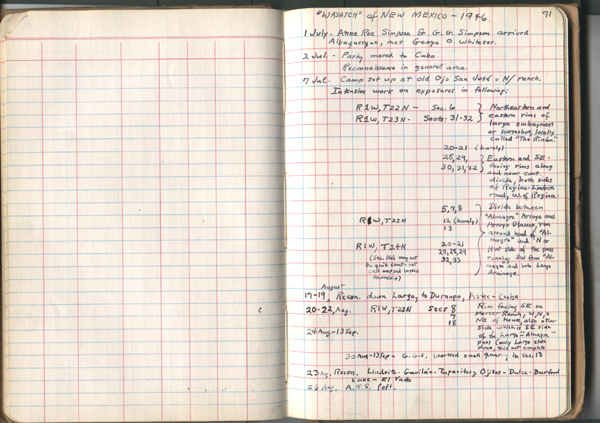 "WASATCH" of NEW MEXICO - 1946
71
1 July. Anne Roe Simpson & G.G. Simpson arrived
Albuquerque, met George O. Whitaker.
2 Jul. - Party moved to Cuba.
Reconnaissance in general area.
7 Jul. Camp set up at old Ojo San José o N/ ranch.
Intensive work on exposures in following:
R1W, T22N - Sec. 6
R1W, T23N - Sects. 31-32
Northeastern and
eastern rims of
large embayment
or horseshoe, locally
called "The Pinta".
20-21 (barely)
28, 29,
30, 31, 32
Eastern and SE-
facing rims along
and near cont.
divide, both sides
of Regina-Lindrith
road, W. of Regina.
5, 7, 8
R1W, T23N 12 (barely)
13
Divide between
"Almagre" Arroyo and
Arroyo Blanco, rim
around head of "Al-
magre" and N or
NW side of the pass
running SW from "Al-
magre" and into Largo
drainage.
R1W, T24N 20-21
28, 29
32, 33
August
17-19, Recon. down Largo, to Durango, Aztec - Cuba
20-22, Aug. R1W, T23N Secs 8
7
18
Rim facing SE on
Mercer Ranch, W, N, &
NE of house, also other
side which is SE side
of the Largo-"Almagre"
pass
24 Aug-13 Sep.
30 Aug-13 Sep - G.G.S. worked small quarry, in Sec. 18
23 Aug. Recon. Lindrith - Gavilan - Tapacitos, Ojitos - Dulce - Burford
Lake - El Vado
26 Aug. A.R.S. left.